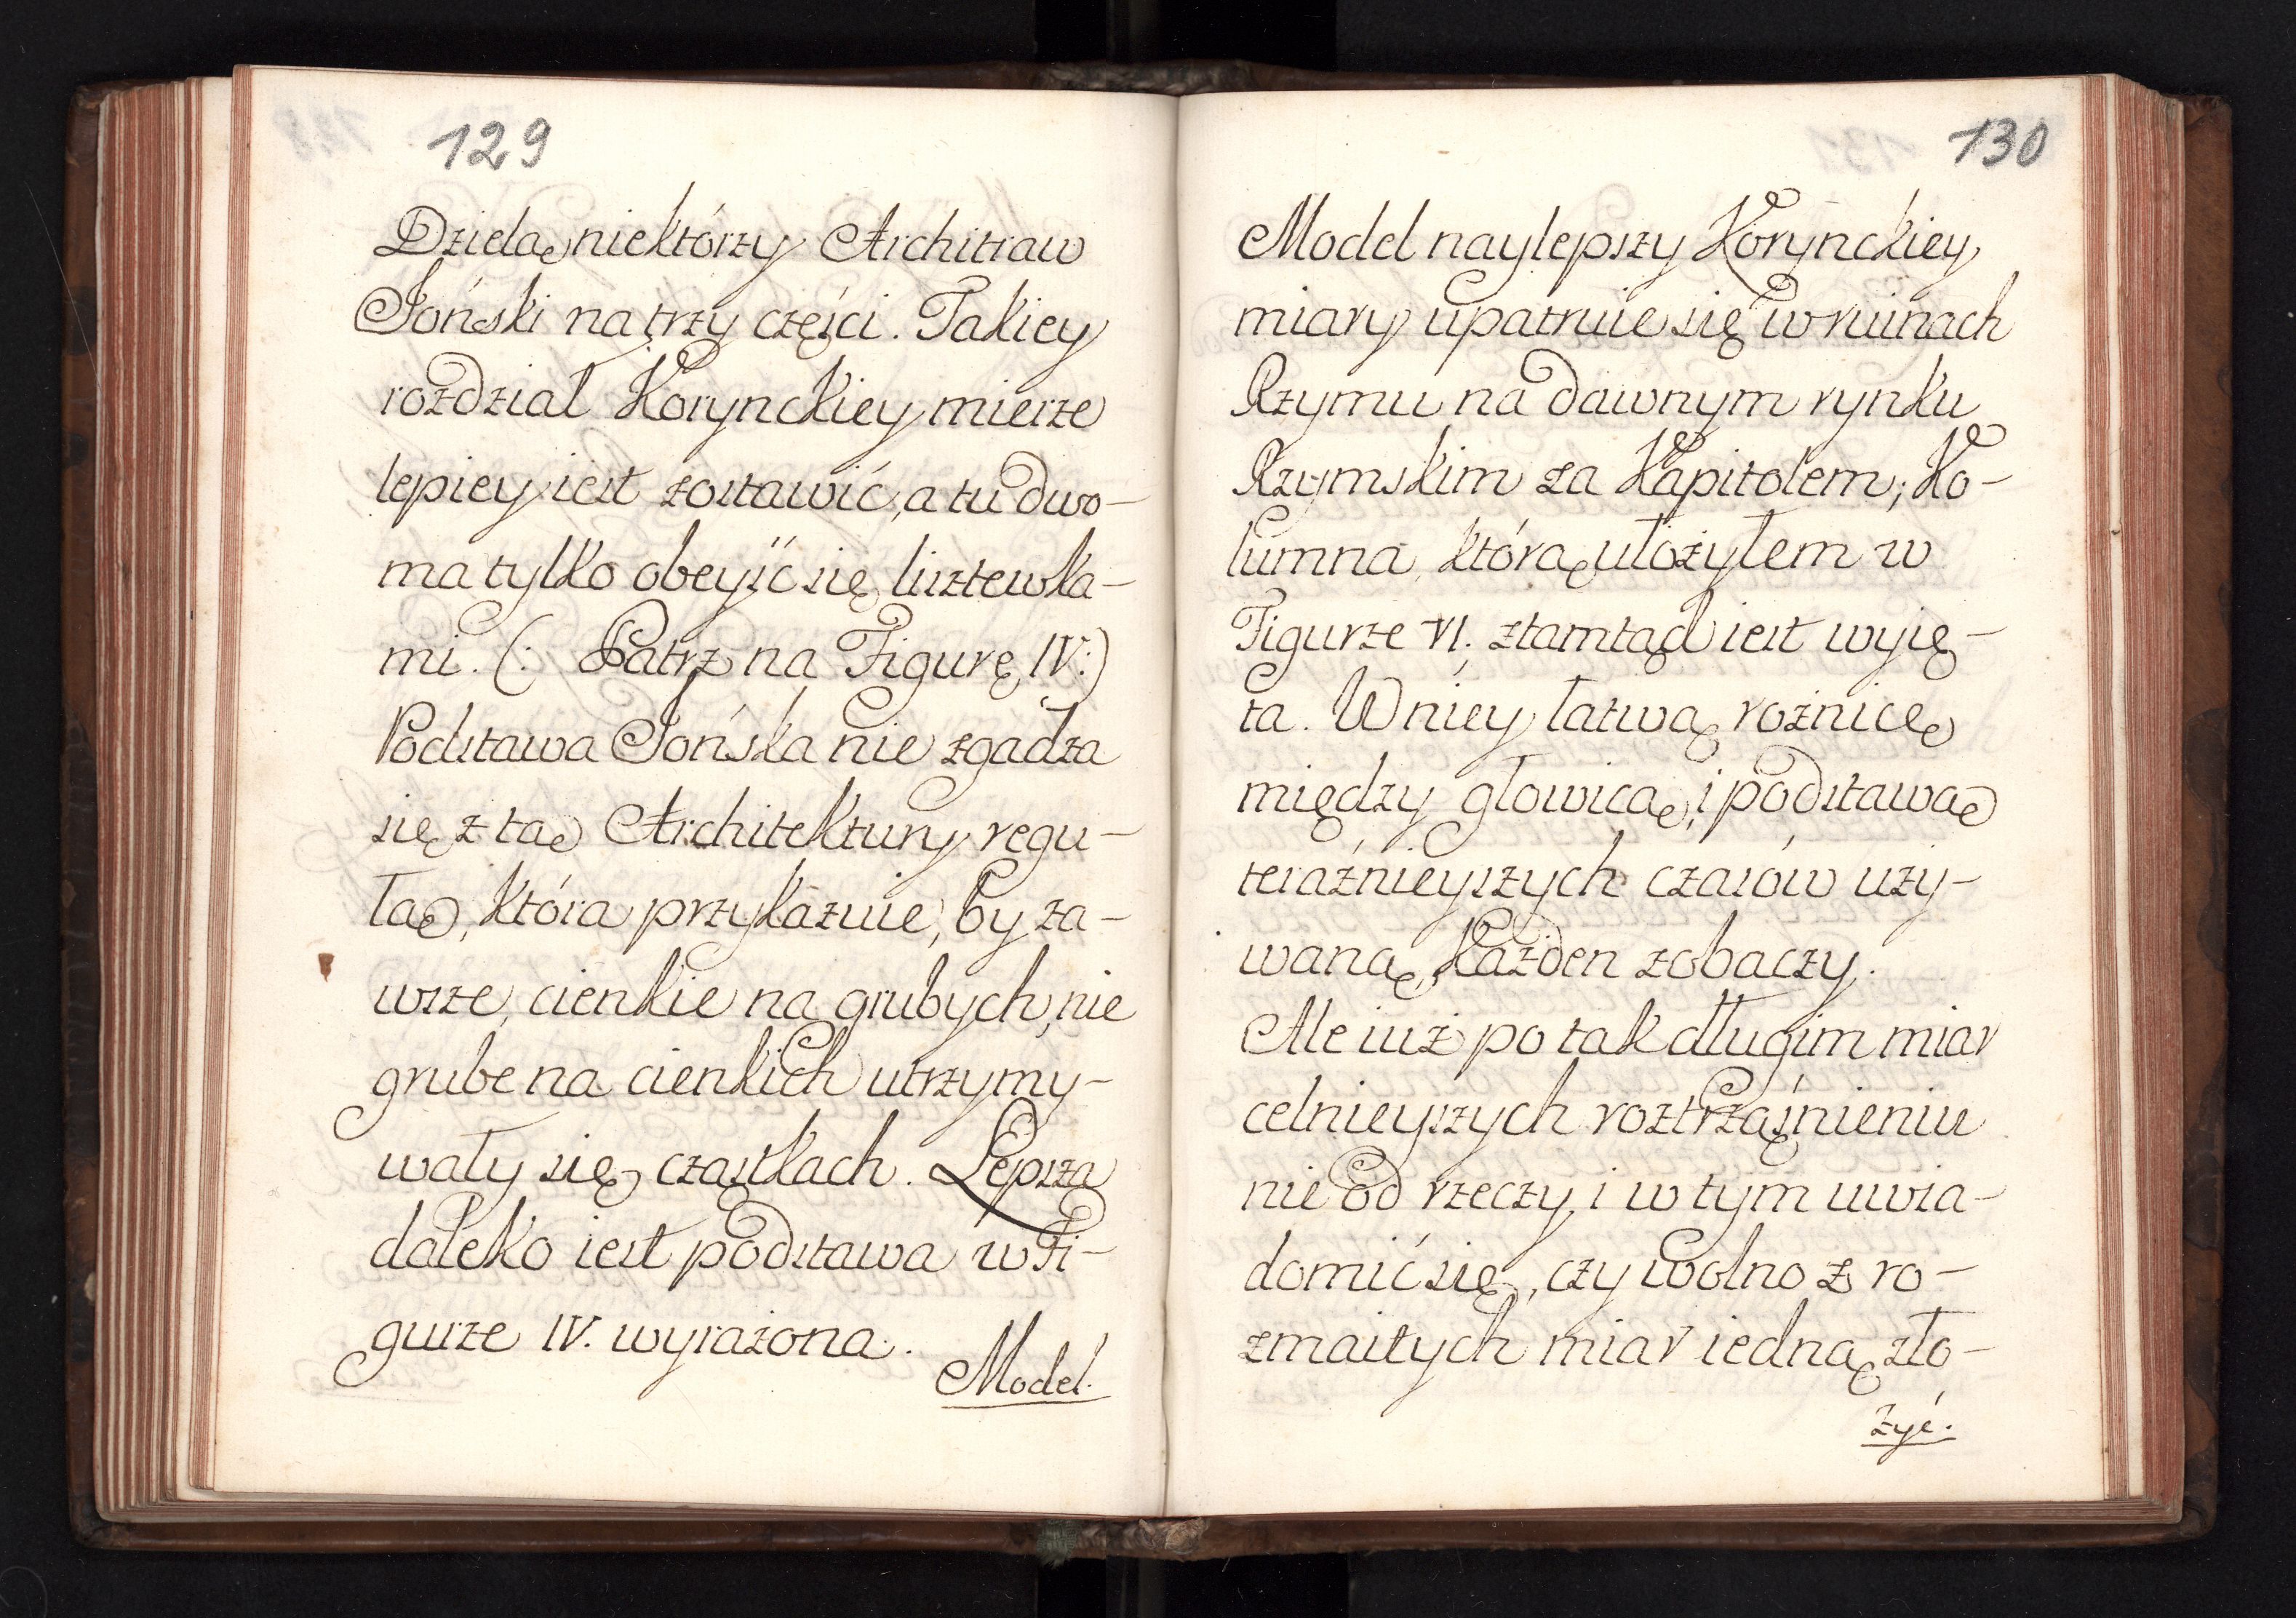 129
Dzielą niektórzy Architraw
Joński na trzy częsci. Takiey
rozdział Korynckiey mierze
lepiey iest zostawić, a tu dwo-
ma tylko obeyść się lisztewka-
mi. (: Patrz na Figurę IV:)
Podstawa Jońska nie zgadza
się z tą Architektury regu-
łą, która przykazuie, by za-
wsze, cienkie na grubych, nie
grube na cienkich utrzymy-
wały się cząstkach. Lepsza
daleko iest podstawa w Fi-
gurze IV. wyrażona.
Model.
130
Model naylepszy Korynckiey
miary upatruie się w ruinach
Rzymu na dawnym rynku
Rzymskim za Kapitolem; Ko-
lumna, którą ułożyłem w
Figurze VI. ztamtąd iest wyię-
ta. W niey łatwą rożnicę
między głowicą, i podstawą
teraźnieyszych czasów uży-
waną, każden zobaczy.
Ale iuż po tak długim miar
celnieyszych roztrząśnieniu
nie od rzeczy, i w tym uwia-
domić się, czy wolno z ro-
zmaitych miar iedną zło-
żyć.